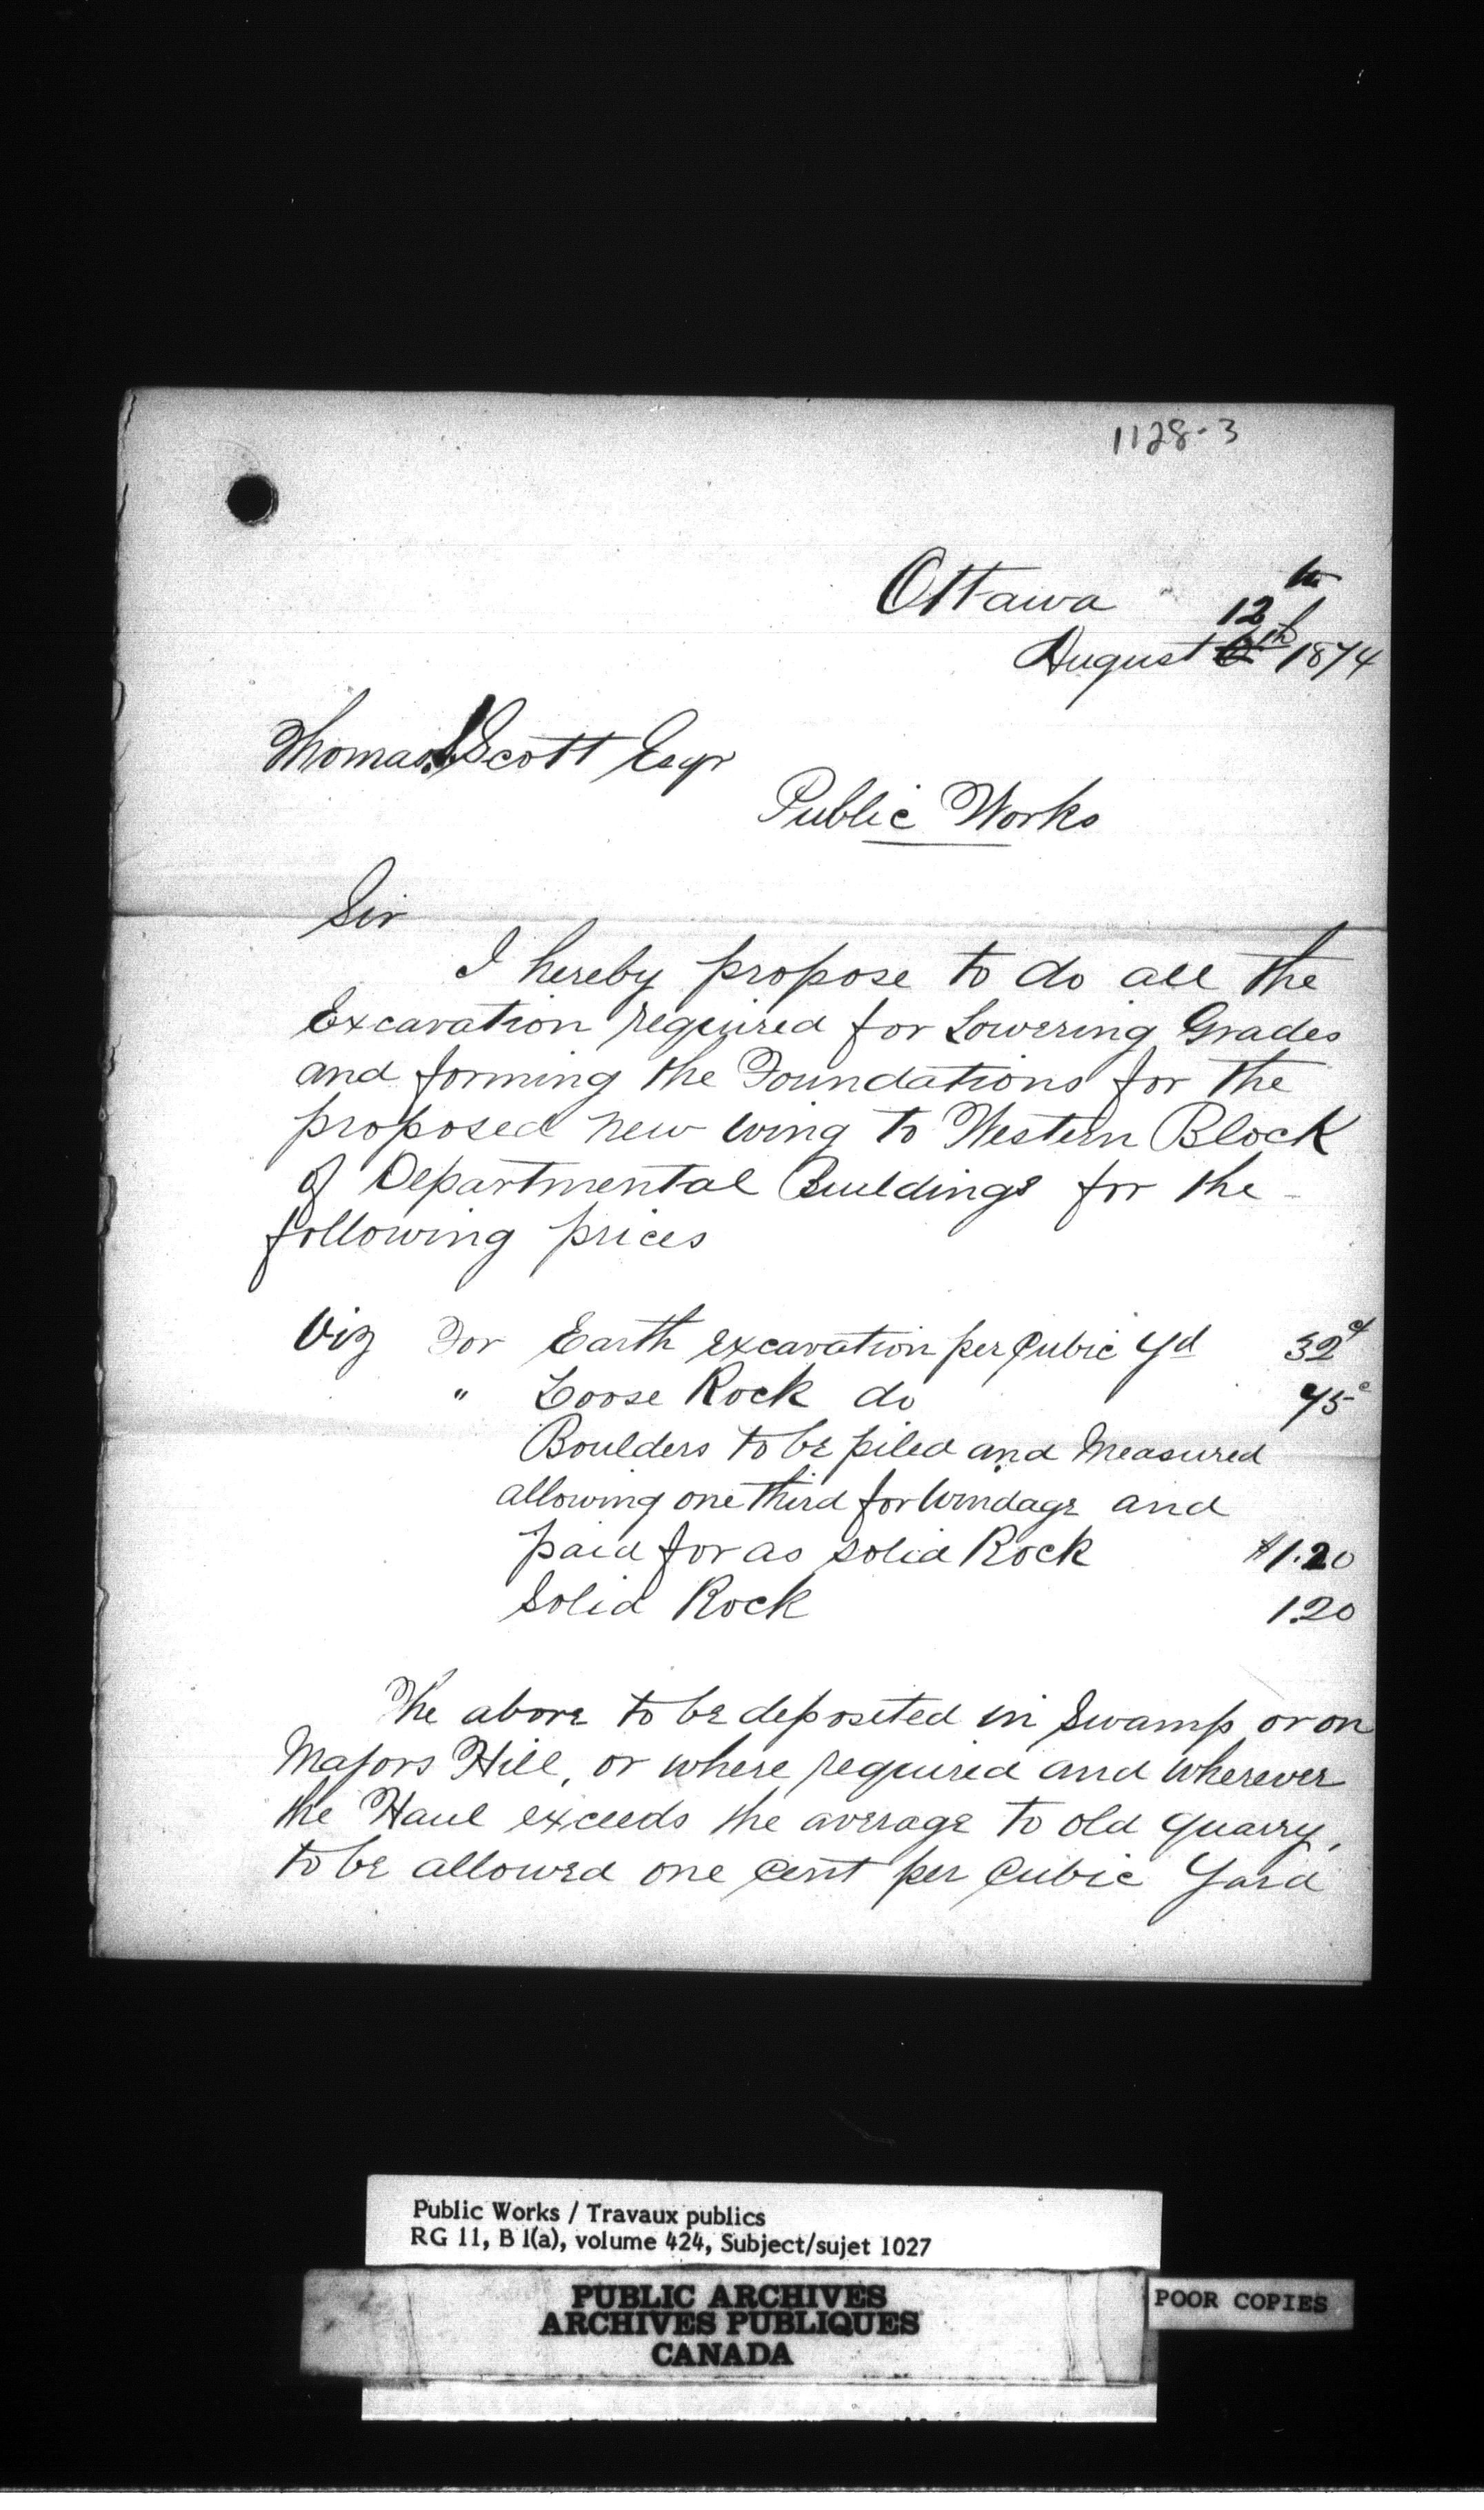 1128-3
Ottawa
12th
August 6th 1874
Thomas S Scott Esqr
Public Works
Sir
I hereby propose to do all the
Excavation required for Lowering Grades
and forming the Foundations for the
proposed new wing to Western Block
of Departmental Buildings for the
following prices
Viz For Earth excavation per Cubic Yd 32c
" Loose Rock do 45c
Boulders to be piled and Measured
allowing one third for Windage and
paid for as solid Rock $1.20
Solid Rock 1.20
The above to be deposited in Swamp or on
Majors Hill, or where required and wherever
the Haul exceeds the average to old quarry,
to be allowed one cent per Cubic Yard
Public Works / Travaux publics
RG 11, B 1(a), volume 424, Subject/sujet 1027
PUBLIC ARCHIVES
ARCHIVES PUBLIQUES
CANADA
POOR COPIES